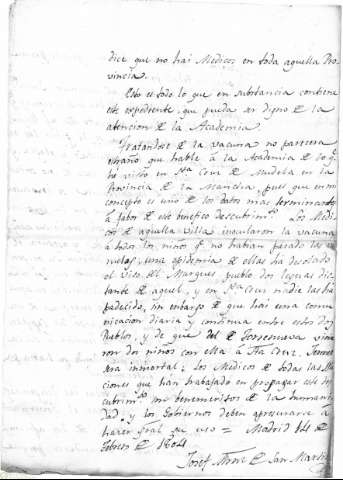 dice que no hai Medicos en toda aquella Pro-
vincia.
Esto es todo lo que en substancia contiene
este expediente, que pueda ser digno de la
atencion de la Academia.
Tratandose de la vacuna no parecera
estraño que hable à la Academia de lo q.e
he visto en S.ta Cruz de Mudela en la
Provincia de la Mancha, pues que en mi
concepto es uno de los datos mas terminantes
à fabor de este benefico descubrim.to Los Medi-
cos de aquella Villa inocularon la vacuna
à todos los niños q.e no habian pasado las vi-
ruelas; una epidemia de ellas ha desolado
el Viso del Marques pueblo dos leguas dis-
tante de aquel, y en S.ta Cruz nadie las ha
padecido, sin embargo de que hai una comu-
nicacion diaria y continua entre estos dos
Pueblos, y de que del de Torrenueva vinie-
ron dos niños con ella à S.ta Cruz.
sera inmortal; los Medicos de todas las Na-
ciones que han trabajado en propagar este des-
cubrim.to son benemeritos de la humani-
dad, y los Gobiernos deben apresurarse à
hacer gral su uso = Madrid 14 de
Febrero de 1804
Josef de San Martin